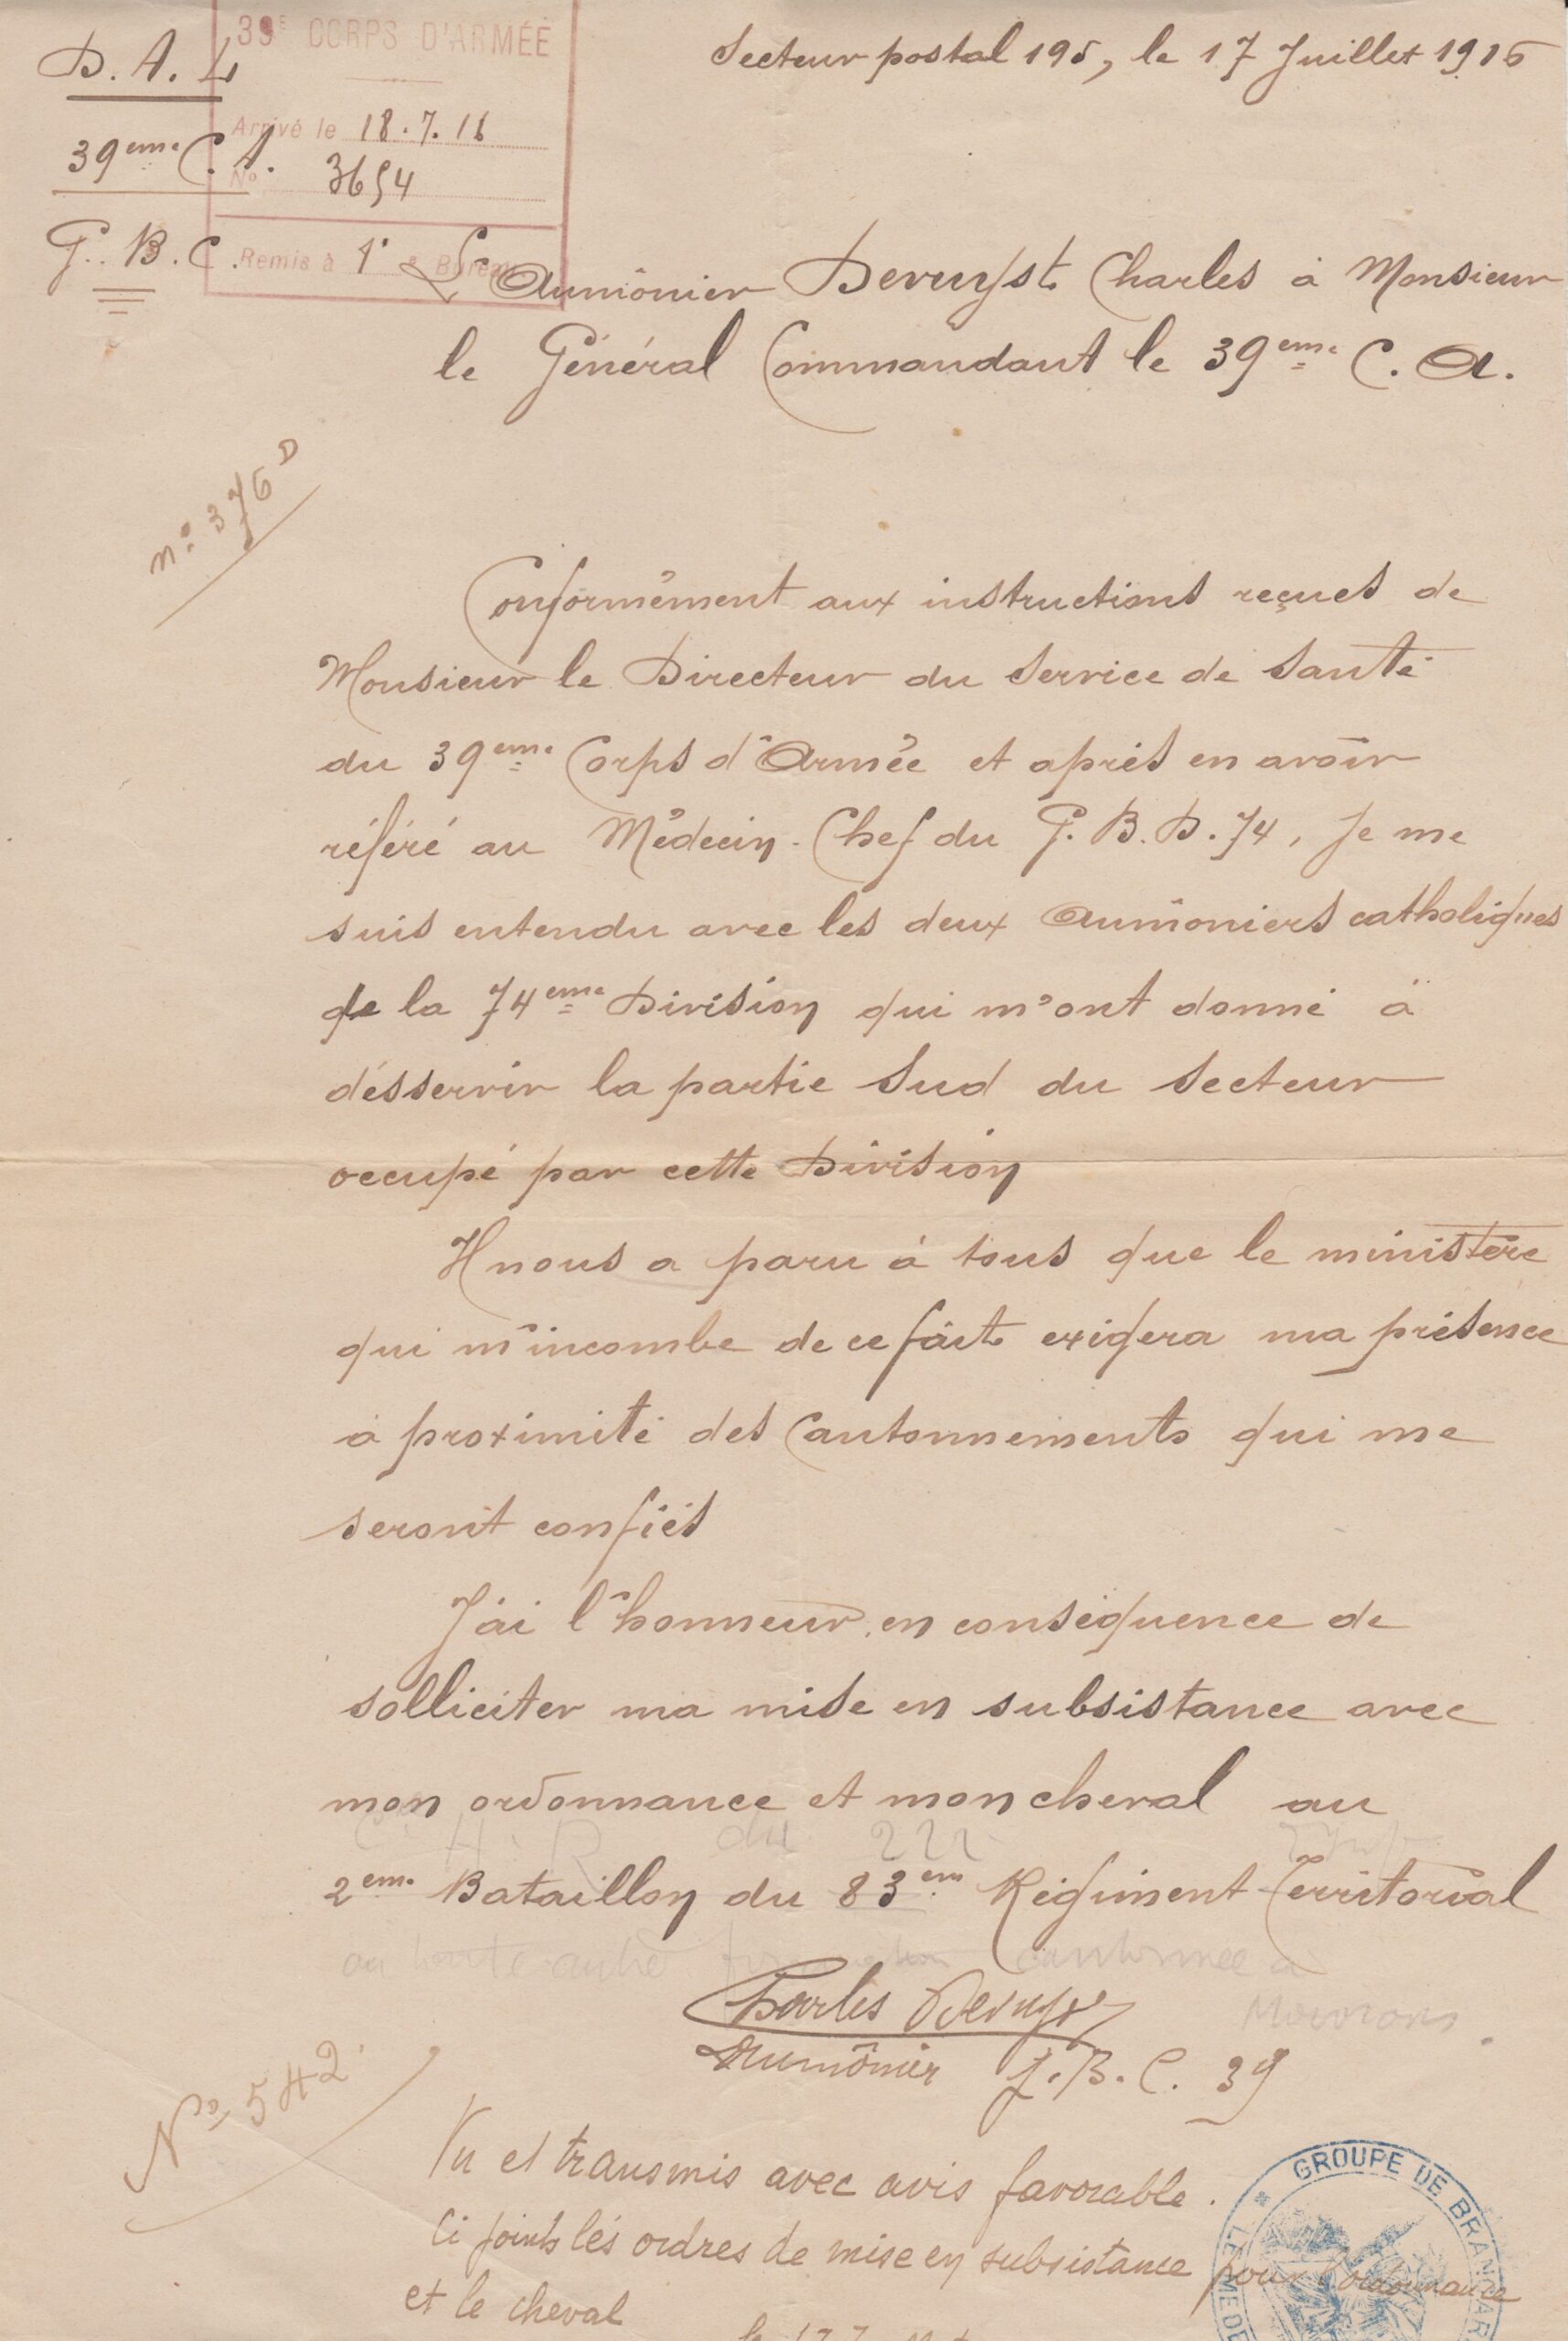 D. A. L
39eme C. A.
G. B. C.
39E CORPS D'ARMÉE
Arrivé le 18.7.16
No 3654
Remis à 1er Bureau
Secteur postal 195, le 17 Juillet 1916
L'Aumônier Devuyst Charles à Monsieur
le Général Commandant le 39eme C. A.
no 376 D
Conformément aux instructions reçues de
Monsieur le Directeur du Service de Santé
du 39eme Corps d'Armée et après en avoir
référé au Médecin-Chef du G. B. D. 74, je me
suis entendu avec les deux Aumôniers catholiques
de la 74eme Division qui m'ont donné à
désservir la partie Sud du Secteur
occupé par cette Division
Il nous a paru à tous que le ministère
qui m'incombe de ce fait exigera ma présence
à proximité des Cantonnements qui me
seront confiés
J'ai l'honneur en conséquence de
solliciter ma mise en subsistance avec
mon ordonnance et mon cheval au
C. H. R. du 222
2eme Bataillon du 83em Régiment Territorial
ou toute autre formation cantonnée à
Charles Devuyst
Aumônier G. B. C. 39
No 542
Vu et transmis avec avis favorable.
Ci joints les ordres de mise en subsistance pour l'ordonnance
et le cheval
GROUPE DE BRANCAR
LE MEDE